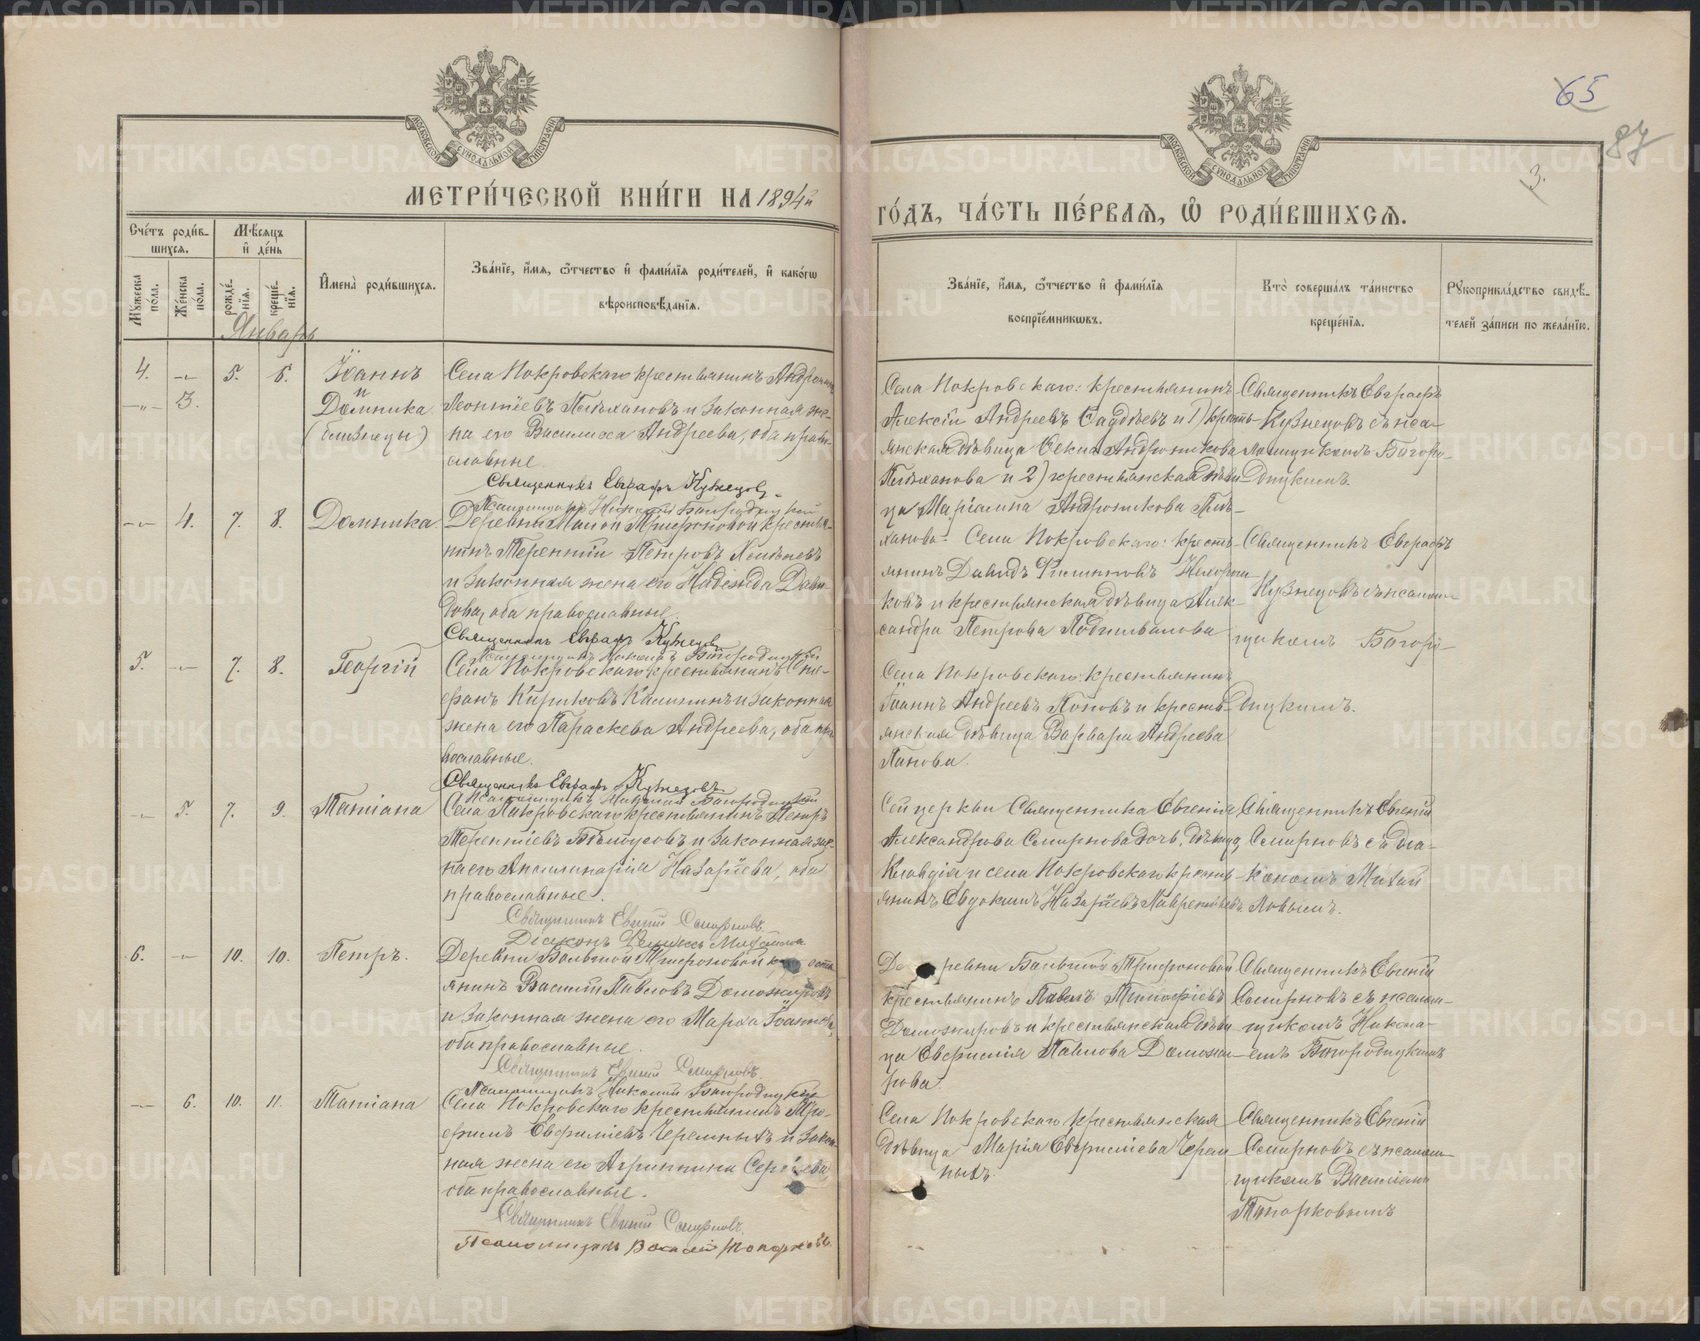 65
87
3.
МОСКОВСКОЙ СѴНОДАЛЬНОЙ ТИПОГРАФІИ
МОСКОВСКОЙ СѴНОДАЛЬНОЙ ТИПОГРАФІИ
МЕТРИ́ЧЕСКОЙ КНИ́ГИ НА 1894й
ГО́ДЪ, ЧА́СТЬ ПЕ́РВАѦ, Ѡ҆ РОДИ́ВШИХСѦ.
Сче́тъ роди́в-
шихся.
Мѣ́сяцъ
и҆ де́нь
Мꙋ́жеска по́ла.
Же́нска по́ла.
рожде́нїя.
креще́нїя.
И҆мена̀ роди́вшихся.
Зва́нїе, и҆́мя, ѻ҆́тчество и҆ фами́лїя роди́телей, и҆ како́гѡ
вѣроисповѣ́данїя.
Зва́нїе, и҆́мя, ѻ҆́тчество и҆ фами́лїя
воспрїе́мникѡвъ.
Кто̀ соверша́лъ та́инство
креще́нїя.
Рꙋкоприкла́дство свидѣ́-
телей за́писи по жела́нїю.
Январь
4. -"- 5. 6. Іоаннъ
и
-"- 3. Домника
(близнецы)
Села Покровскаго крестьянинъ Андроникъ
Леонтіевъ Плѣхановъ и законная же-
на его Василиса Андреева, оба право-
славные.
Священникъ Евграфъ Кузнецовъ
Псаломщикъ Николай Богородицкій
Села Покровскаго: крестьянинъ
Алексій Андреевъ Авдѣевъ и 1) кресть-
янская дѣвица Фекла Андроникова
Плѣханова и 2) крестьянская дѣви-
ца Маріамна Андроникова Плѣ-
ханова.
Священникъ Евграфъ
Кузнецовъ съ пса-
ломщикомъ Богоро-
дицкимъ.
-"- 4. 7. 8. Домника
Деревни Малой Трифоновой крестья-
нинъ Терентій Петровъ
и законная жена его Надежда Дави-
дова, оба православные.
Священникъ Евграфъ Кузнецовъ
Псаломщикъ Николай Богородицкій
Села Покровскаго: кресть-
янинъ Давидъ Филипповъ
ковъ и крестьянская дѣвица Алек-
сандра Петрова
Священникъ Евграфъ
Кузнецовъ съ псалом-
щикомъ Богоро-
дицкимъ.
5. -"- 7. 8. Георгій
Села Покровскаго крестьянинъ Сте-
фанъ Кириковъ Калининъ и законная
жена его Параскева Андреева, оба пра-
вославные.
Священникъ Евграфъ Кузнецовъ
Псаломщикъ Николай Богородицкій
Села Покровскаго: крестьянинъ
Іоаннъ Андреевъ Поповъ и кресть-
янская дѣвица Варвара Андреева
Попова.
-"- 5. 7. 9. Татіана
Села Покровскаго крестьянинъ Петръ
Терентіевъ Бѣлоусовъ и законная же-
на его Аполлинарія Назаріева, оба
православные.
Священникъ Евгеній Смирновъ
Діаконъ
Сей церкви Священника Евгенія
Александрова Смирнова дочь, дѣвица
Клавдія и села Покровскаго кресть-
янинъ Евдокимъ Назаріевъ Лаврентьевъ
Священникъ Евгеній
Смирновъ съ діа-
кономъ Михай-
ловымъ.
6. -"- 10. 10. Петръ.
Деревни Большой Трифоновой крестья-
янинъ Василій Павловъ Доможировъ
и законная жена его Марѳа Іоаннова,
оба православные.
Священникъ Евгеній Смирновъ
Псаломщикъ Николай Богородицкій
Деревни Большой Трифоновой
крестьянинъ Павелъ Тимофеевъ
Доможировъ и крестьянская дѣви-
ца Евфимія Павлова Доможи-
рова.
Священникъ Евгеній
Смирновъ съ псалом-
щикомъ Никола-
емъ Богородицкимъ
-"- 6. 10. 11. Татіана
Села Покровскаго крестьянинъ Тро-
фимъ Евфиміевъ Черемныхъ и закон-
ная жена его Агриппина Сергѣева,
оба православные.
Священникъ Евгеній Смирновъ
Псаломщикъ Василій Топорковъ
Села Покровскаго крестьянская
дѣвица Марія Евфиміева Черем-
ныхъ
Священникъ Евгеній
Смирновъ съ псалом-
щикомъ Василіемъ
Топорковымъ
METRIKI.GASO-URAL.RU